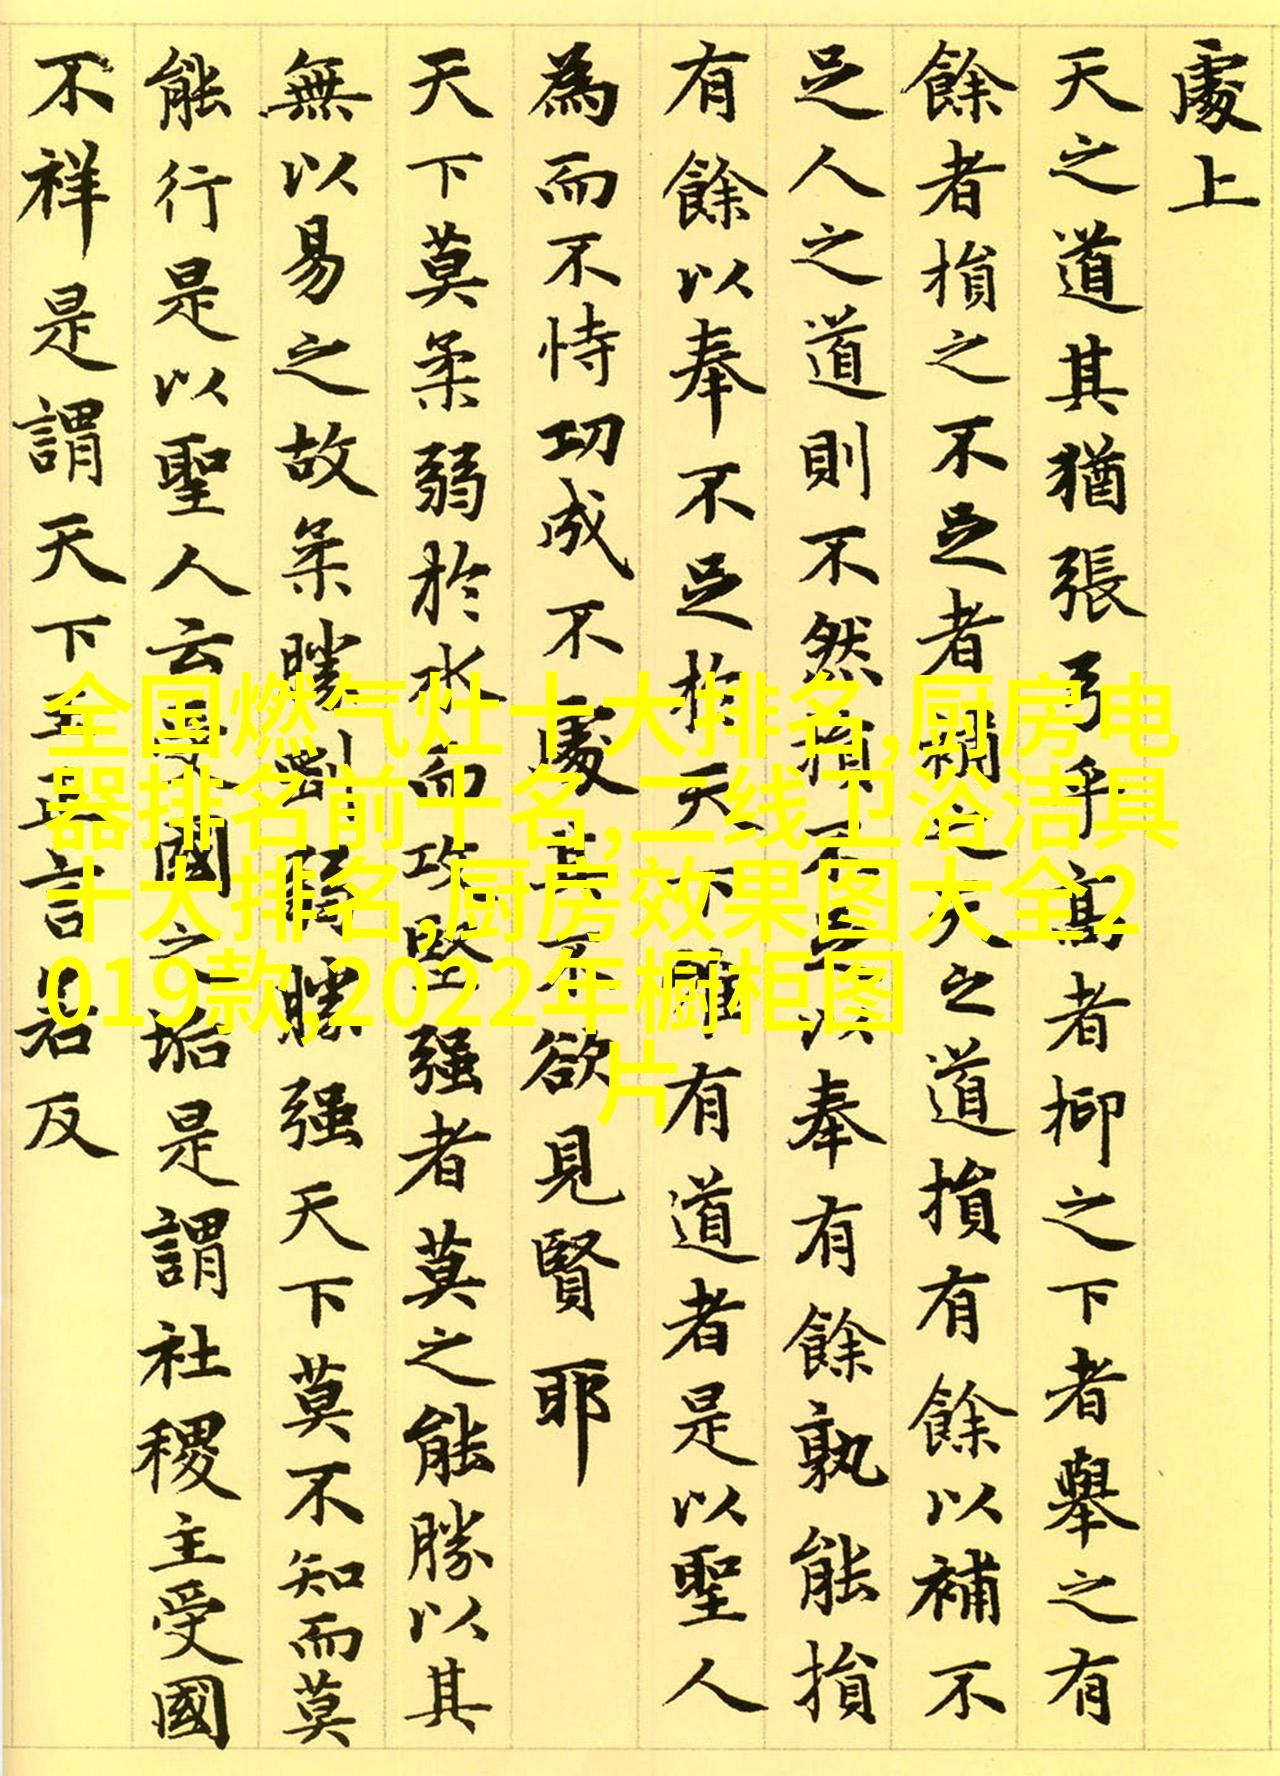 處上
天之道其猶張弓乎高者抑之下者舉之有
餘者損之不足者補之天之道損有餘以補不
足人之道則不然損不足以奉有餘孰能損
有餘以奉不足於天下唯有道者是以聖人
為而不恃功成不處其不欲見賢耶
天下莫柔弱於水而攻堅强者莫之能勝以其
無以易之故柔勝剛弱勝强天下莫不知而莫
能行是以聖人云受國之垢是謂社稷主受國
不祥是謂天下王正言若反
全国燃气灶十大排名,厨房电
器排名前十名,二线卫浴洁具
十大排名,厨房效果图大全2
019款,2022年橱柜图
片